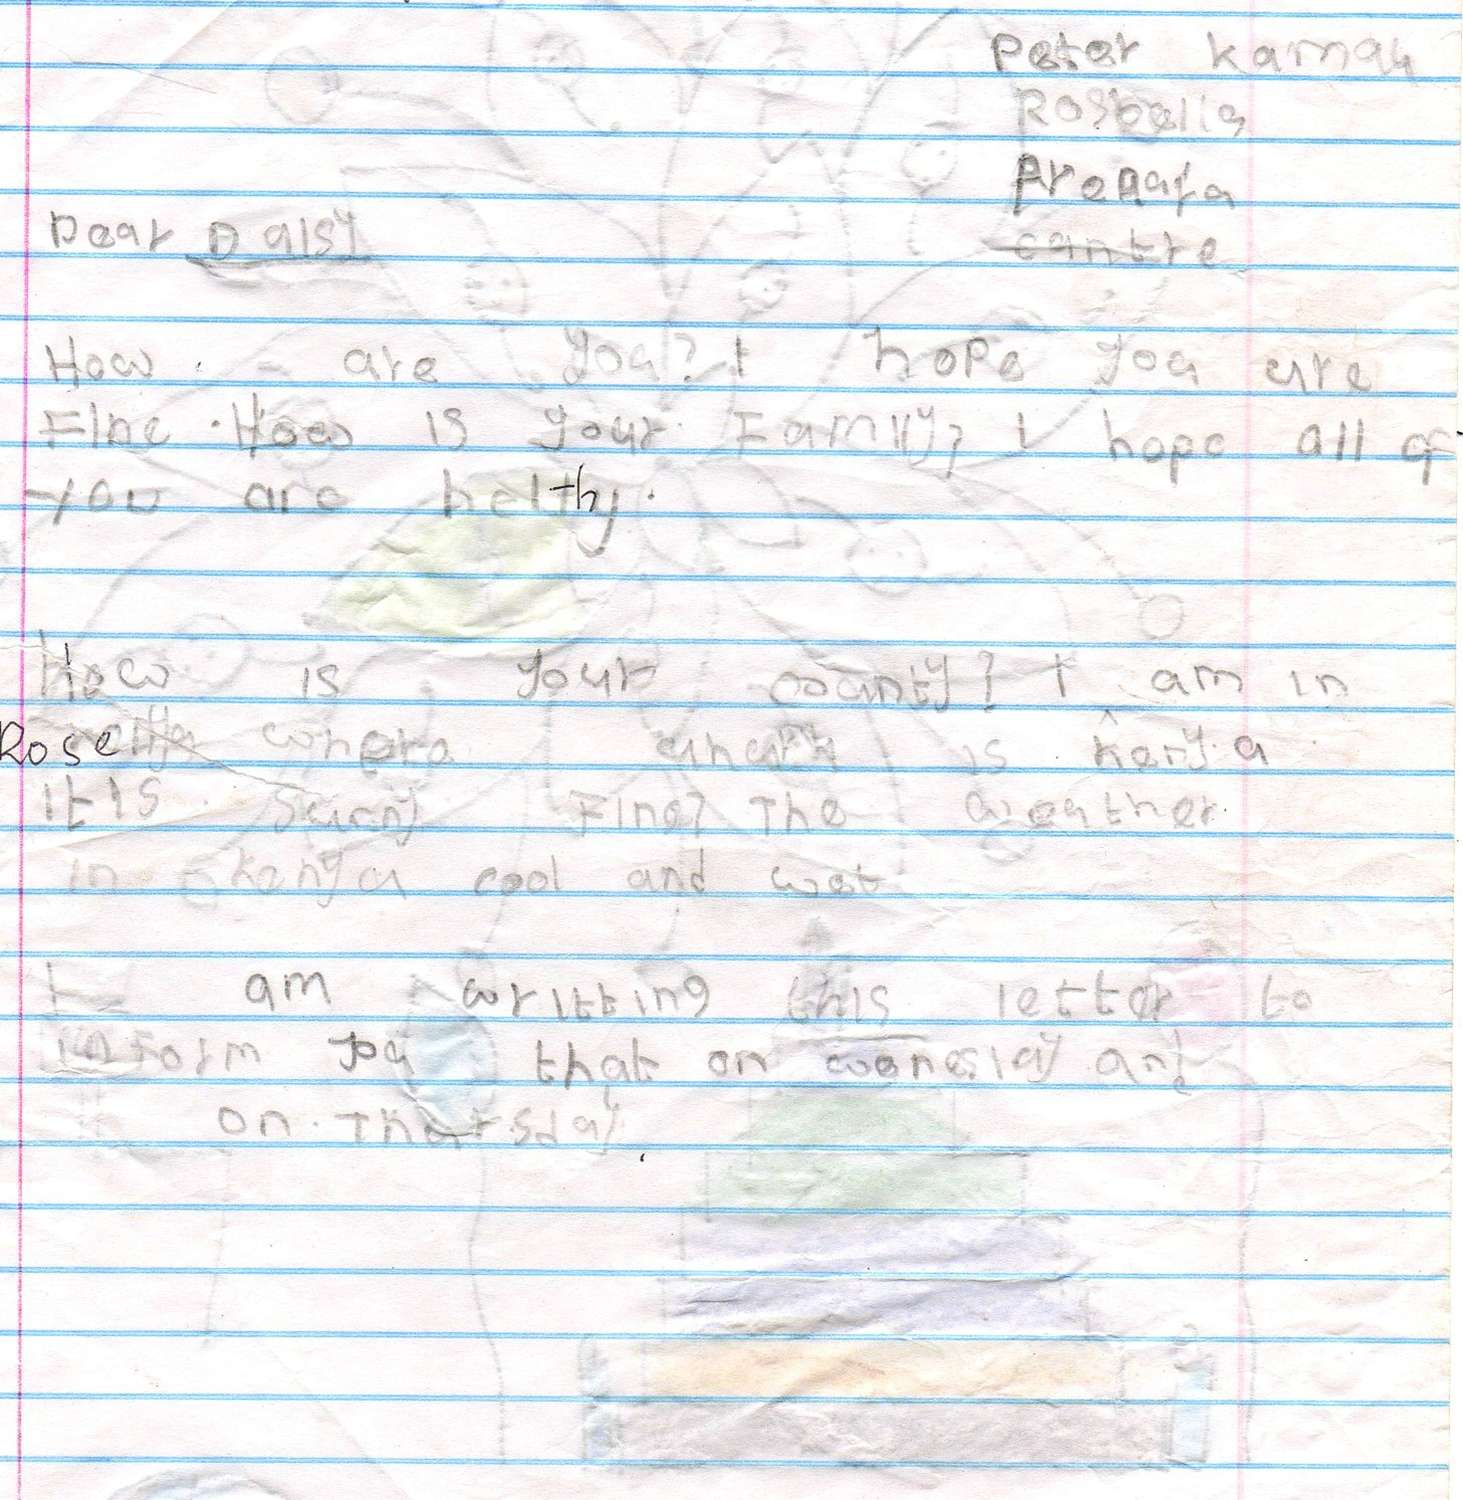 Peter Kamau
Rosbelia
Prepara
centre
Dear Daisy
How are you? I hope you are
Fine. How is your Family? I hope all of
you are helthy.
How is your county? I am in
Rose where is Kenya
it is Suny Fine? The weather
in Kenya cool and wet
I am writting this letter to
inform you that on and
on Thursday